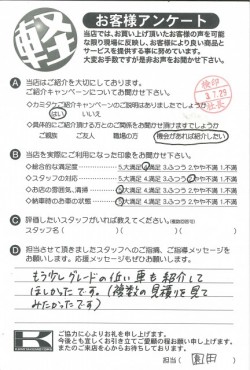 軽
お客様アンケート
当店では、お買い上げ頂いたお客様の声を可能な
限り現場に反映し、お客様により良い商品と
サービスを提供する事に努めています。
大変お手数ですが是非お声をお聞かせ下さい。
検印
3.1.29
社長
A 当店はご紹介を大切にしております。
ご紹介キャンペーンについてお聞かせ下さい。
◇カミタケご紹介キャンペーンのご説明はありましたでしょうか
はい いいえ
◇具体的にご紹介頂ける方とのご関係をお聞かせ頂けますでしょうか
ご親族 ご友人 職場の方 機会があれば紹介したい
B 当店を実際にご利用になった印象をお聞かせ下さい。
◇総合的な満足度 5.大満足 4.満足 3.ふつう 2.やや不満 1.不満
◇スタッフの対応 5.大満足 4.満足 3.ふつう 2.やや不満 1.不満
◇お店の雰囲気、清掃 5.大満足 4.満足 3.ふつう 2.やや不満 1.不満
◇納車時のお車の状態 5.大満足 4.満足 3.ふつう 2.やや不満 1.不満
C 評価したいスタッフがいれば教えてください。(複数回答可)
スタッフ名( )( )
D 担当させて頂きましたスタッフへのご指摘、ご指導メッセージを
お願いします。応援メッセージもぜひお願いします。
もう少しグレードの低い車も紹介して
ほしかったです。(複数の見積りを見て
みたかったです)
K
ご協力に心よりお礼を申し上げます。
今後とも宜しくお引き立てご愛顧の程お願い申し上げます。
またのご来店を心からお待ちしております。
担当( 園田 )